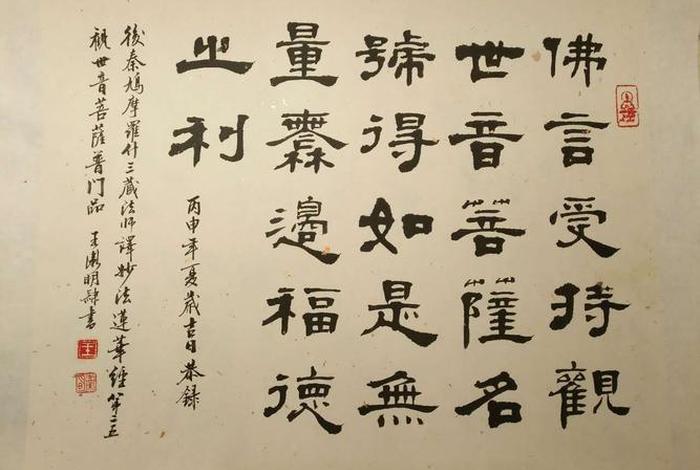 佛言受持觀
世音菩薩名
號得如是無
量橆邊福德
之利
丙申年夏歲吉日恭錄
後秦鳩摩羅什三藏法師譯妙法蓮華經第二五
觀世音菩薩普门品 王明隸書